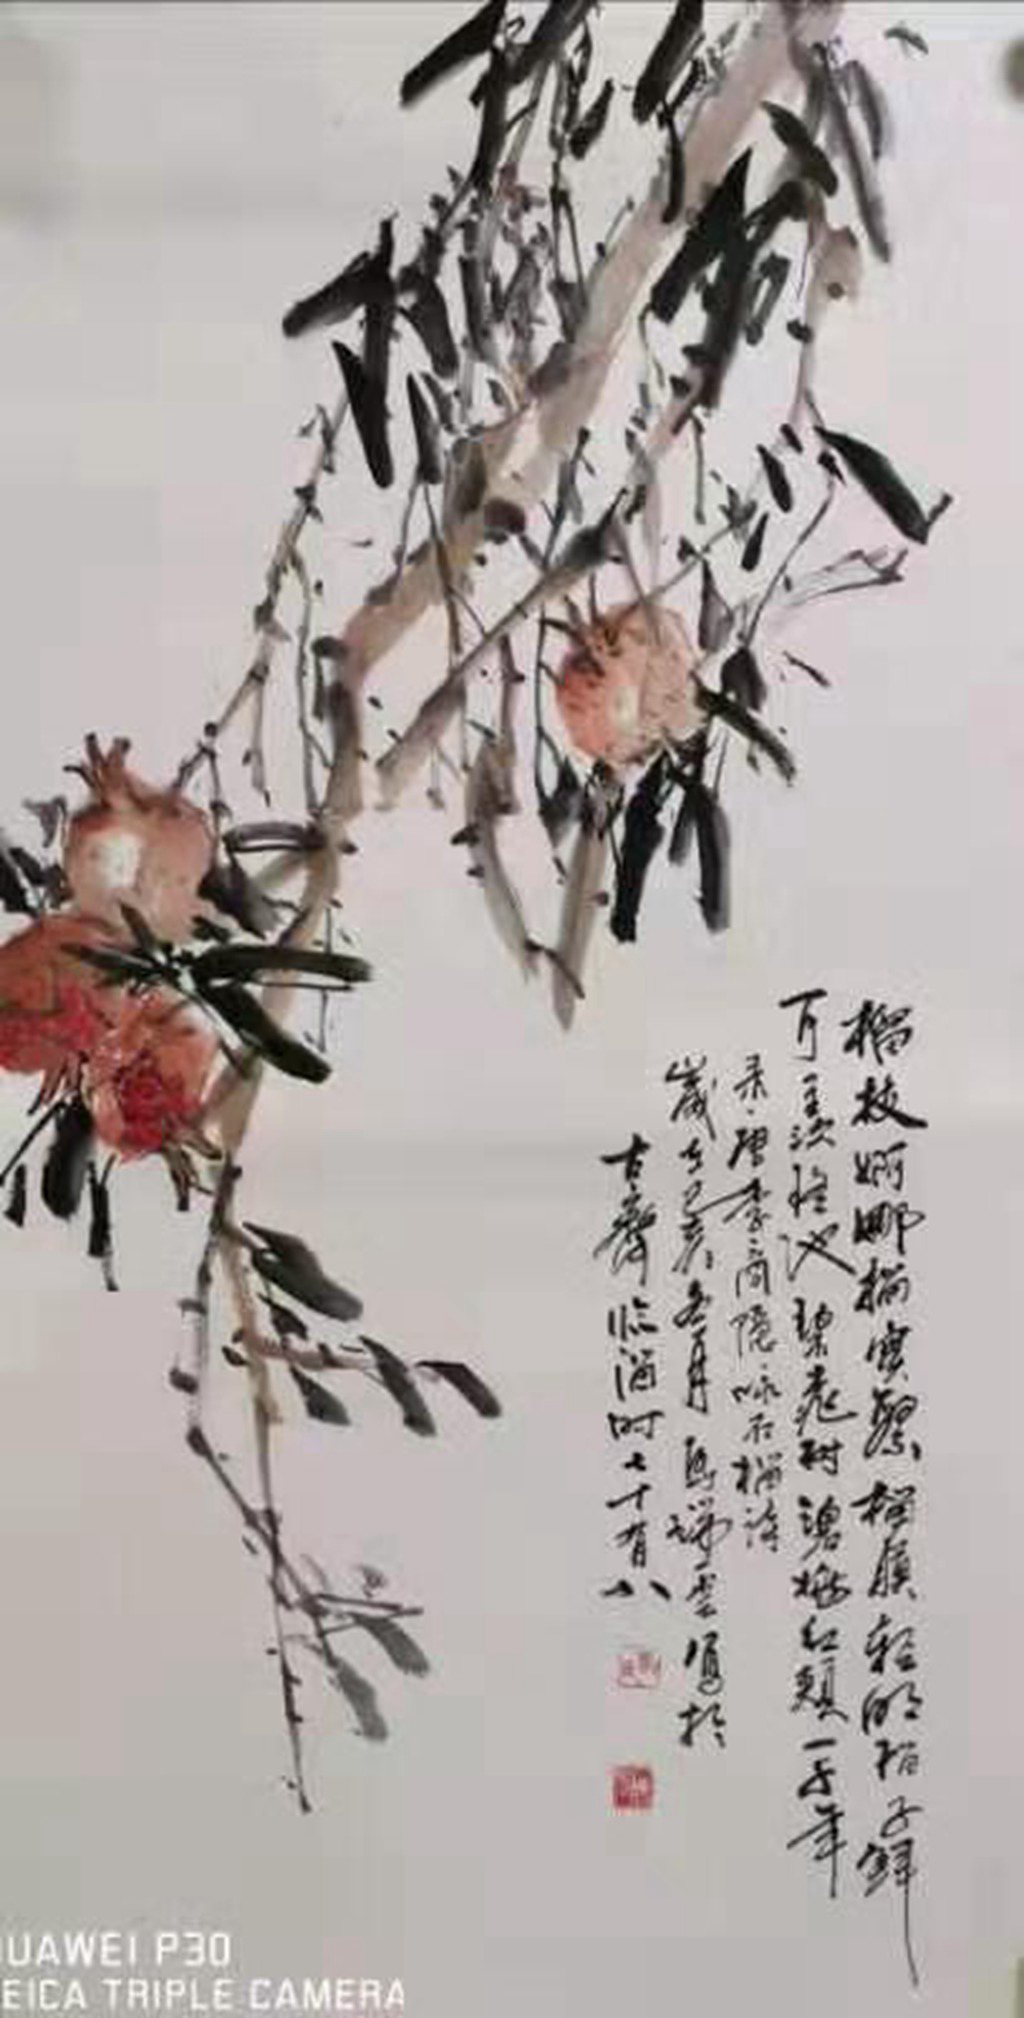 榴枝婀娜榴實繁榴膜轻明榴子鲜
可羡瑶池碧桃树碧桃红颊一千年
录唐李商隐咏石榴诗
歲在己亥冬月瑞雲写於
古齊临淄时七十有八
HUAWEI P30
LEICA TRIPLE CAMERA